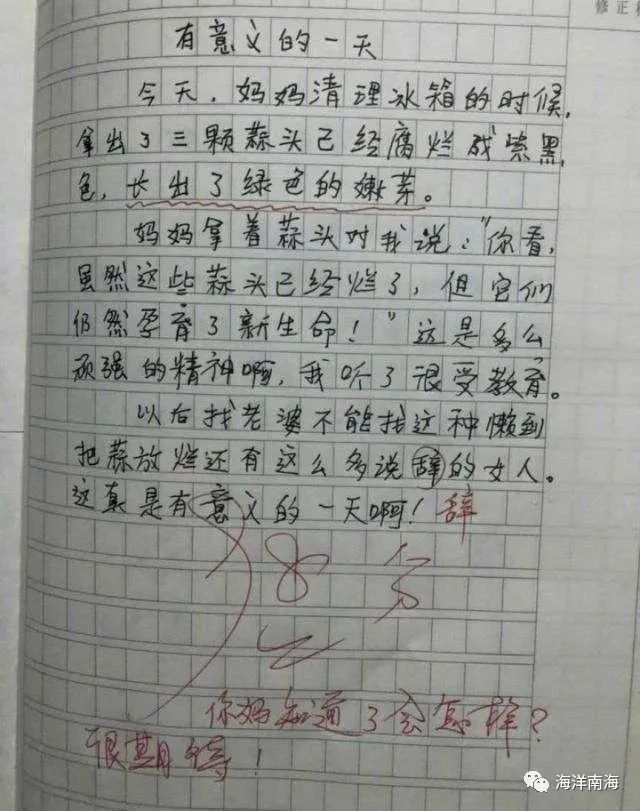 修正
有意义的一天
今天，妈妈清理冰箱的时候，
拿出了三颗蒜头已经腐烂成紫黑
色，长出了绿色的嫩芽。
妈妈拿着蒜头对我说："你看，
虽然这些蒜头已经烂了，但它们
仍然孕育了新生命！"这是多么
顽强的精神啊，我听了很受教育。
以后找老婆不能找这种懒到
把蒜放烂还有这么多说辞的女人。
这真是有意义的一天啊！辞
8分
你妈知道了会怎样？
很期待！
海洋南海